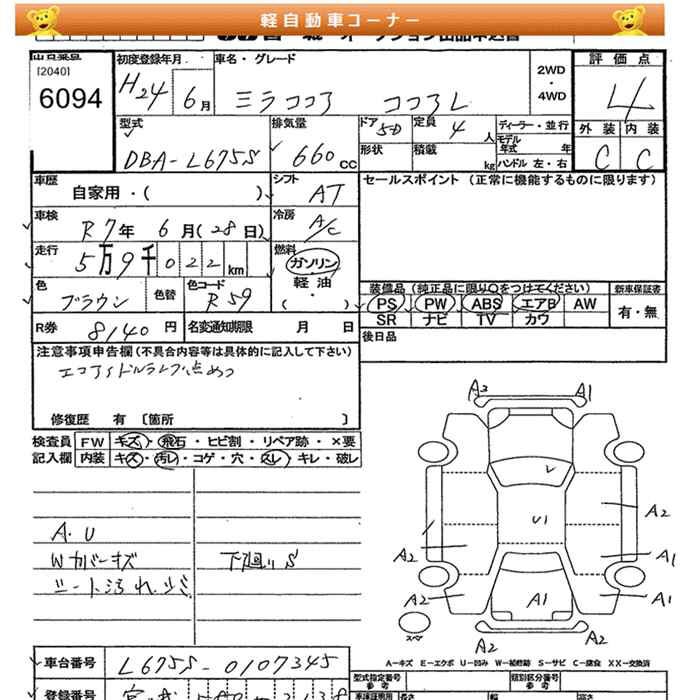 軽自動車コーナー
オークション出品申込書
出品番号
[2040]
6094
初度登録年月
H24 6月
車名・グレード
ミラココア ココアL
2WD
・
4WD
評価点
4
外装 内装
C C
型式
DBA-L675S
排気量
660 CC
ドア 5D
定員 4人
形状
積載 kg
ディーラー・並行
モデル年式 年
ハンドル 左・右
車歴
自家用・( )
シフト
AT
セールスポイント (正常に機能するものに限ります)
車検
R7年 6月(28日)
冷房
A/C
走行
5万9千022km
燃料
ガソリン
軽油
( ・ )
色
ブラウン
色替
色コード
R59
装備品(純正品に限り○をつけてください)
PS PW ABS エアB AW
SR ナビ TV カワ
新車保証書
有・無
R券 8140円
名変通知期限 月 日
後日品
注意事項申告欄(不具合内容等は具体的に記入して下さい)
エコアイドルランプ点めつ
修復歴 有 〔箇所 〕
検査員 FW キズ・飛石・ヒビ割・リペア跡・×要
記入欄 内装 キズ・汚レ・コゲ・穴・スレ・キレ・破レ
A・U
Wカバーキズ
シート汚れ少々
下廻りS
A3 A1
U1
A2
A2 A1
A2 A1 A1
スペア
A2 A2
A-キズ E-エクボ U-凹み W-補修跡 S-サビ C-腐食 XX-交換済
車台番号
L675S-0107345
登録番号
型式指定番号
参考
類別区分番号
参考
長さ 幅 高さ